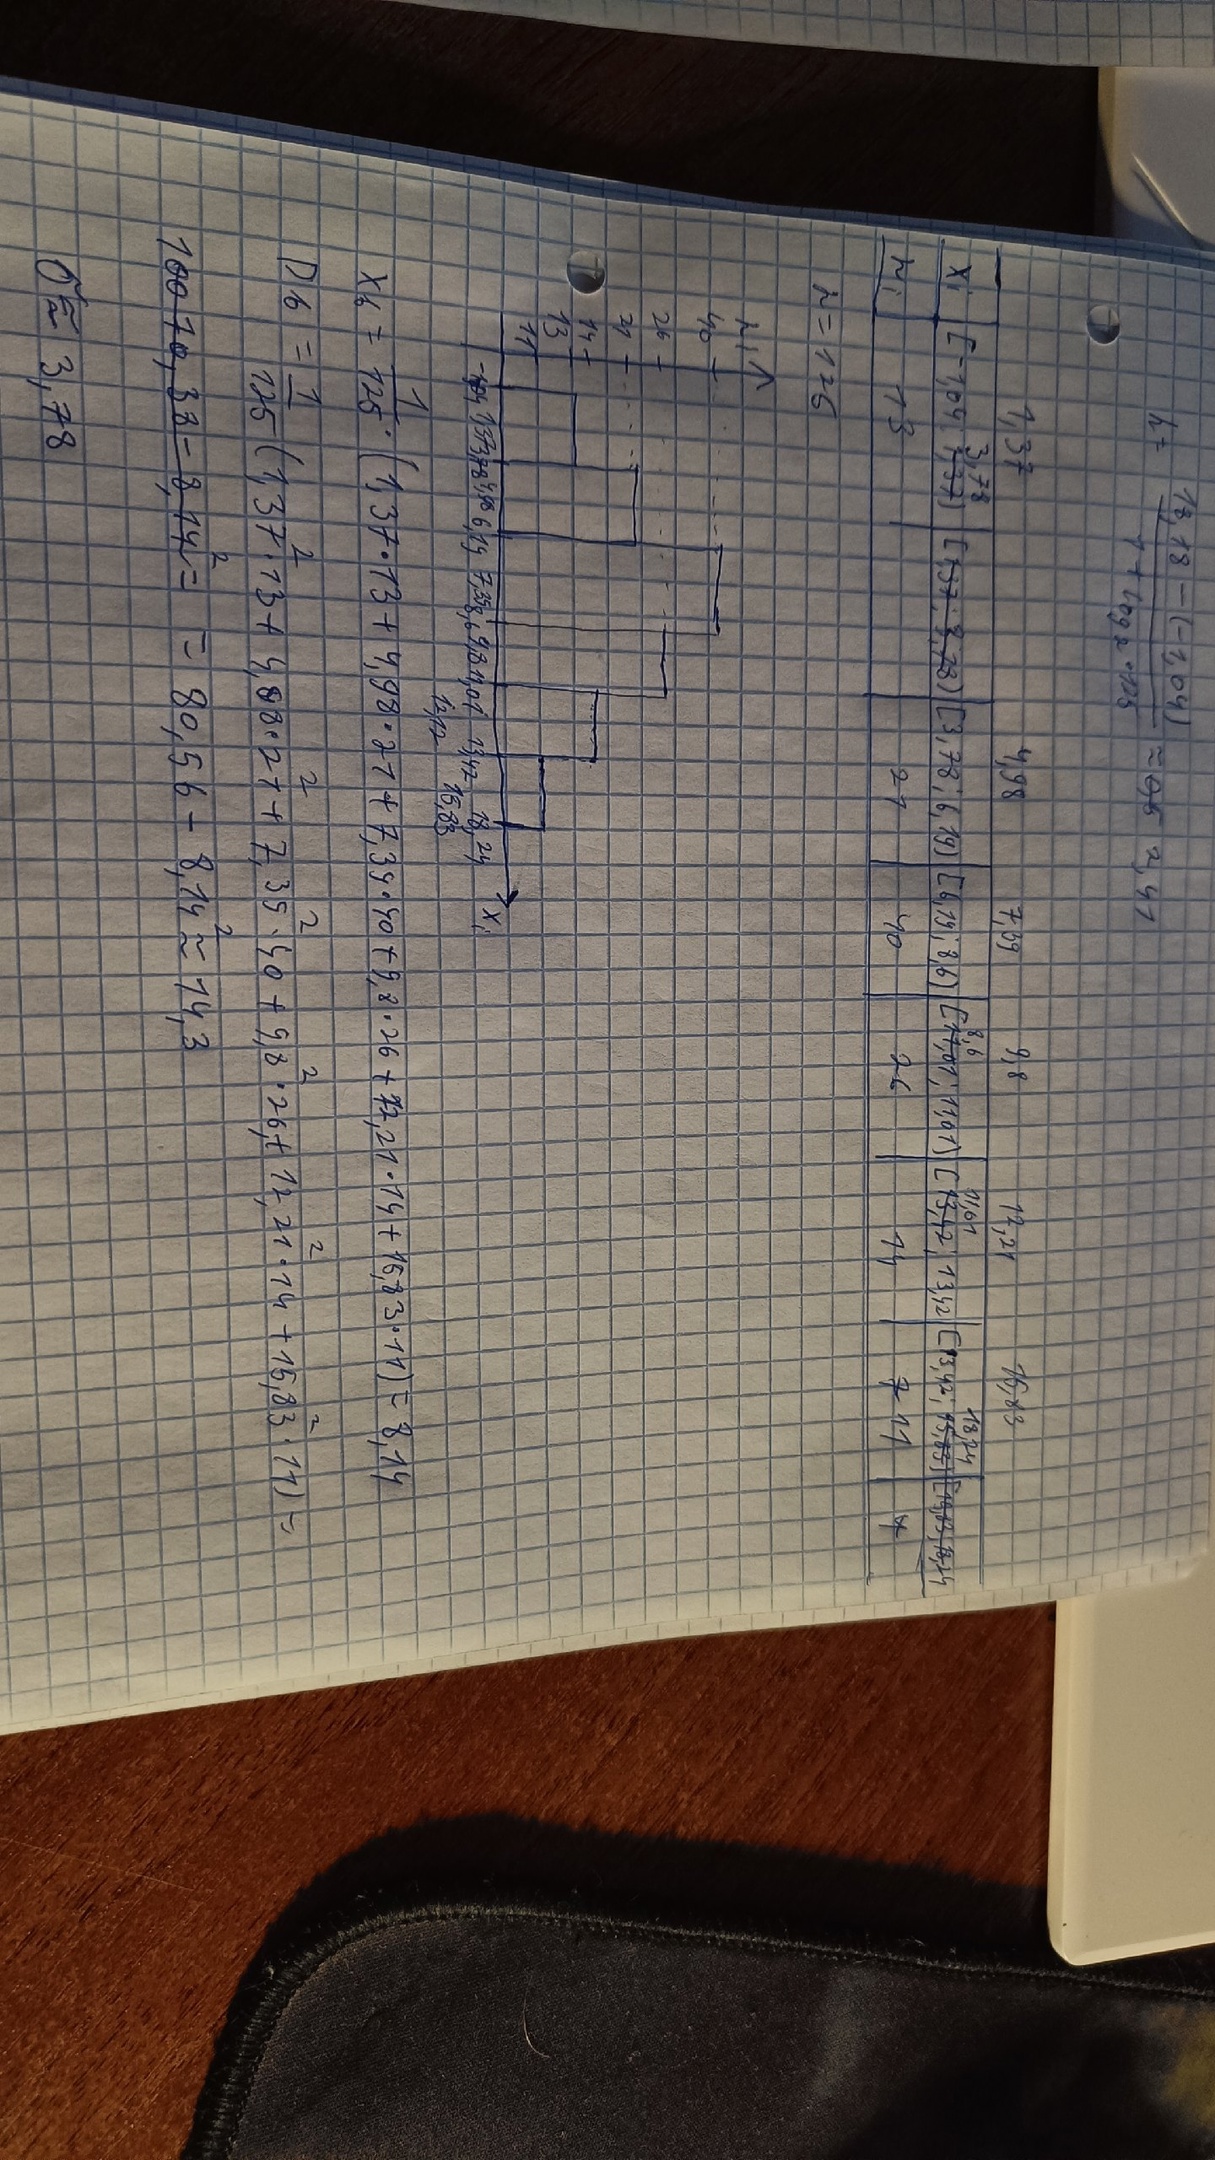 h = 18,18 - (-1,04) / 1 + log2 125 ≈ 2,41
1,37 4,98 7,39 9,8 12,21 15,83
xi [-1,04; 3,78) [3,78; 6,19) [6,19; 8,6) [8,6; 11,01) [11,01; 13,42) [13,42; 18,24
ni 13 21 40 26 14 11
n = 125
ni
40
26
21
14
13
11
1,37 3,78 4,98 6,19 7,39 8,6 9,8 11,01 13,42 18,24 xi
15,83
xb = 1/125 · (1,37·13 + 4,98·21 + 7,39·40 + 9,8·26 + 12,21·14 + 15,83·11) = 8,14
Db = 1/125 (1,37²·13 + 4,98²·21 + 7,39²·40 + 9,8²·26 + 12,21²·14 + 15,83²·11) =
= 80,56 - 8,14² ≈ 14,3
σ ≈ 3,78